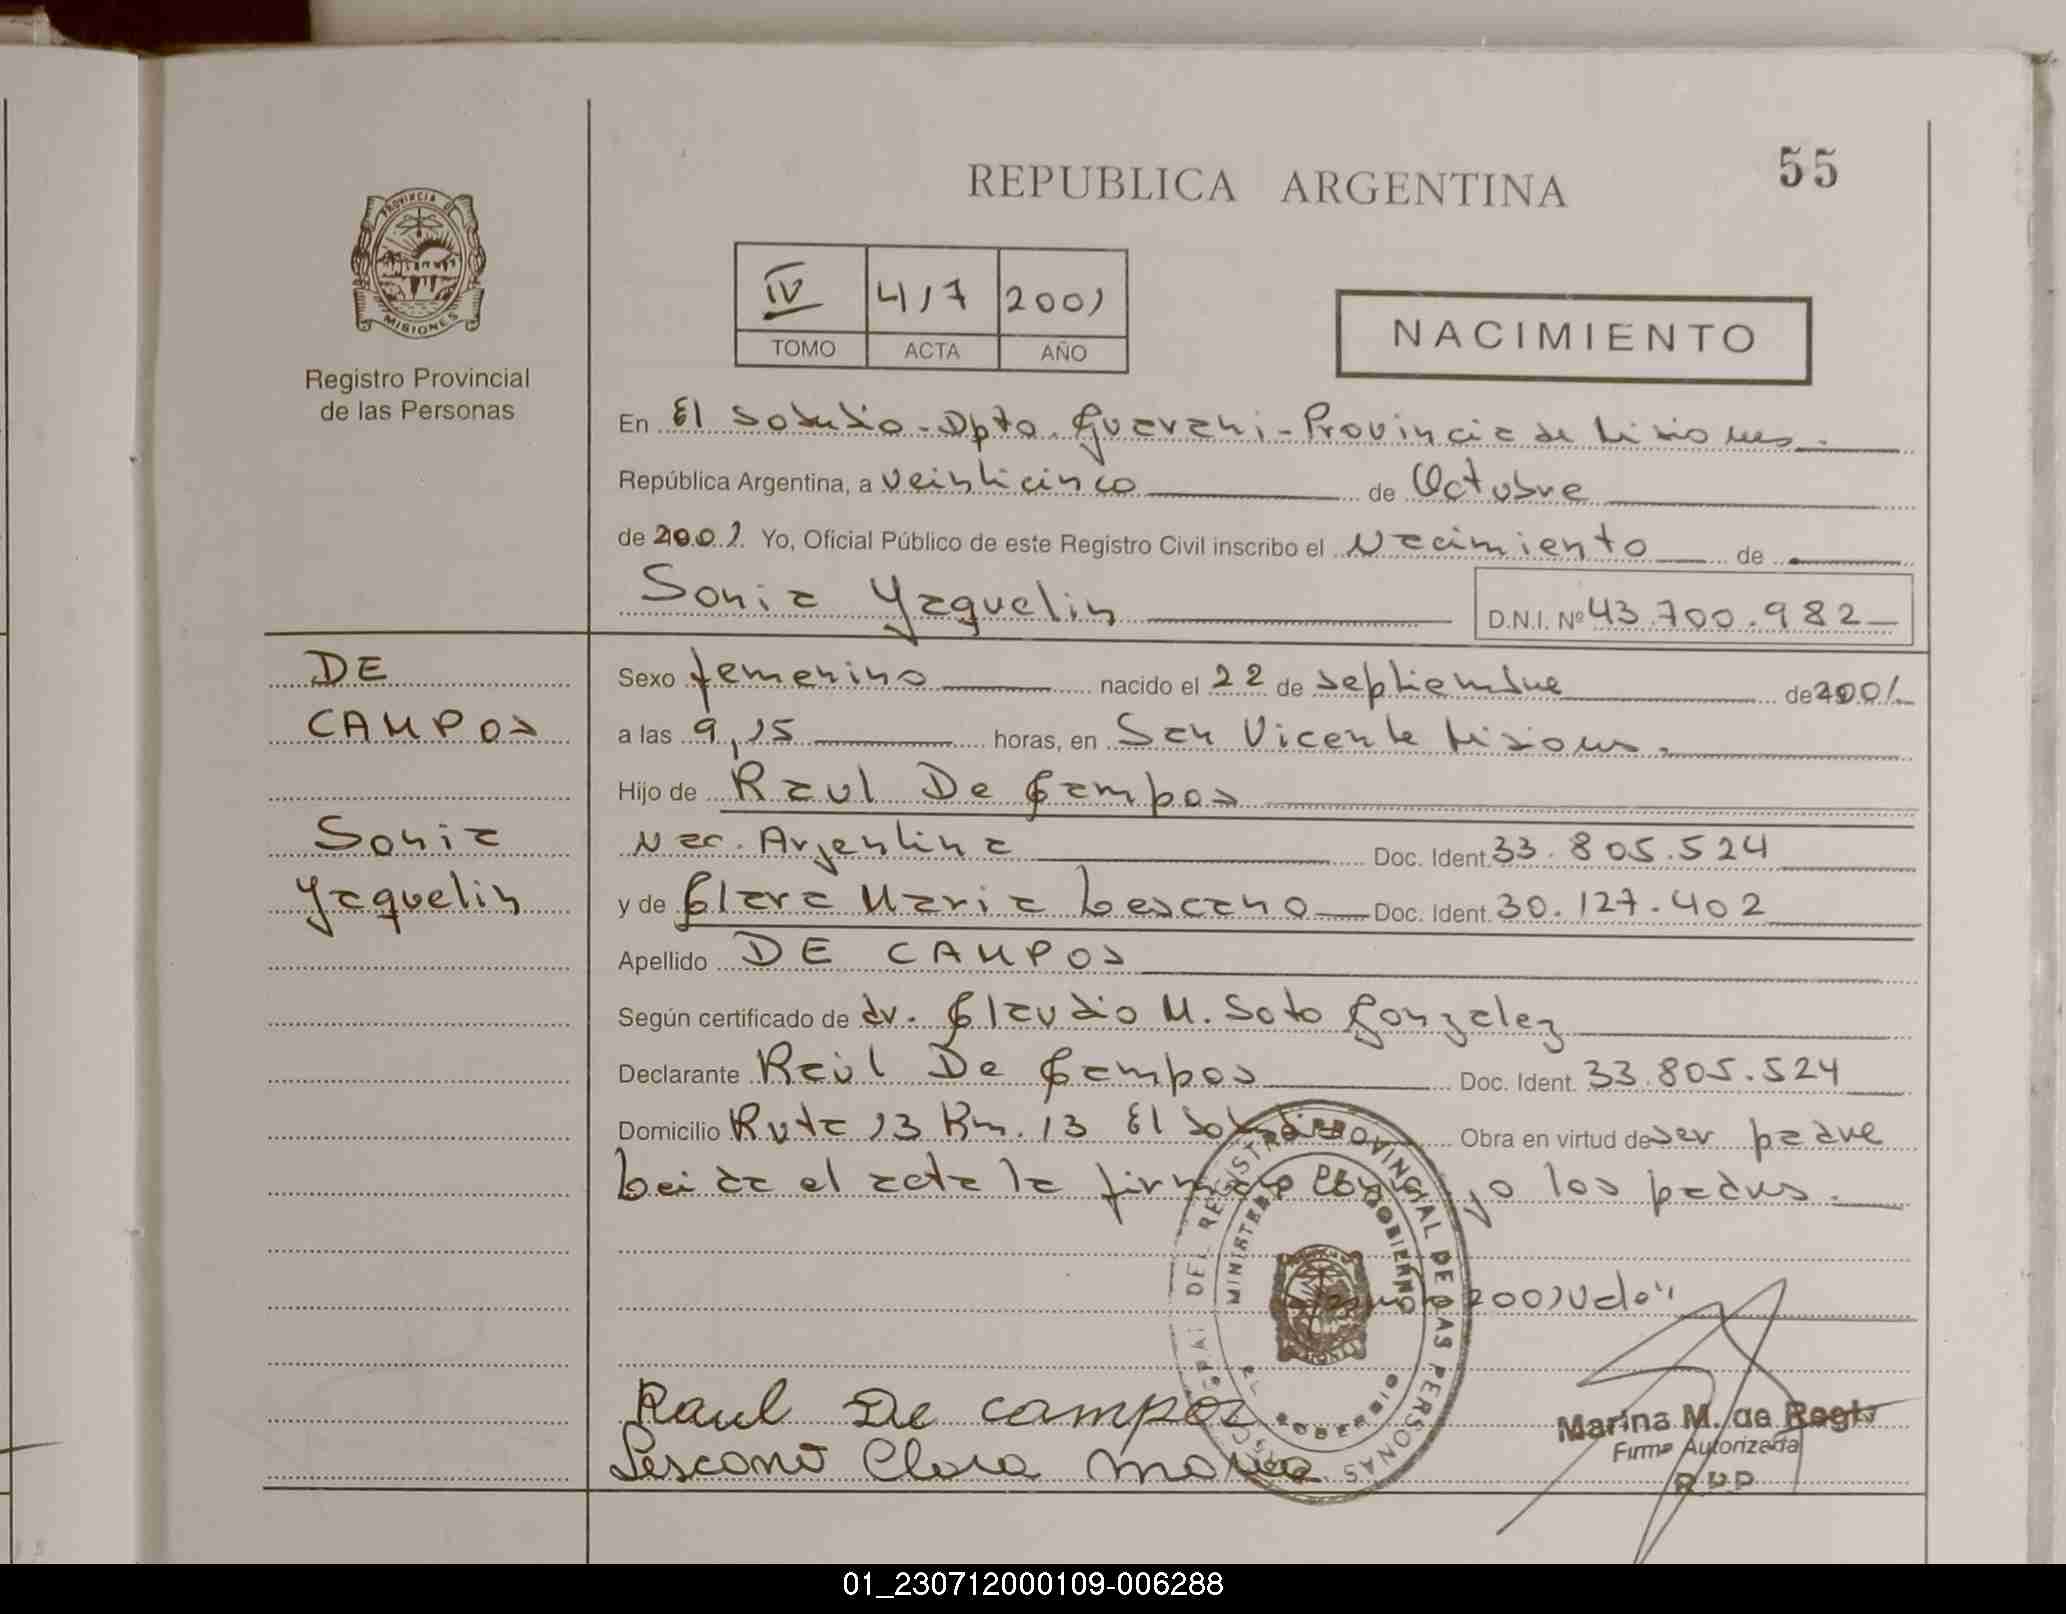 REPUBLICA ARGENTINA
55
PROVINCIA DE
MISIONES
Registro Provincial
de las Personas
IV 417 2001
TOMO ACTA AÑO
NACIMIENTO
En El Soberbio - Dpto. Guarani - Provincia de Misiones.
República Argentina, a veinticinco de Octubre
de 2001 Yo, Oficial Público de este Registro Civil inscribo el Nacimiento de
Sonia Yaquelin D.N.I. Nº 43.700.982
DE
CAMPOS
Sonia
Yaquelin
Sexo femenino nacido el 22 de septiembre de 2001
a las 9,15 horas, en San Vicente Misiones.
Hijo de Raul De Campos
Nac. Argentina Doc. Ident. 33.805.524
y de Clara Maria Lescano Doc. Ident. 30.127.402
Apellido DE CAMPOS
Según certificado de dr. Claudio M. Soto Gonzalez
Declarante Raúl De Campos Doc. Ident. 33.805.524
Domicilio Ruta 13 Km. 13 El Soberbio Obra en virtud de ser padre
Leida el acta la firman conmigo los padres.
2001 Vale"
Raul De campos
Lescano Clara Maria
REGISTRO PROVINCIAL DE LAS PERSONAS
MINISTERIO DE GOBIERNO
Marina M. de Regis
Firma Autorizada
R.P.P
01_230712000109-006288